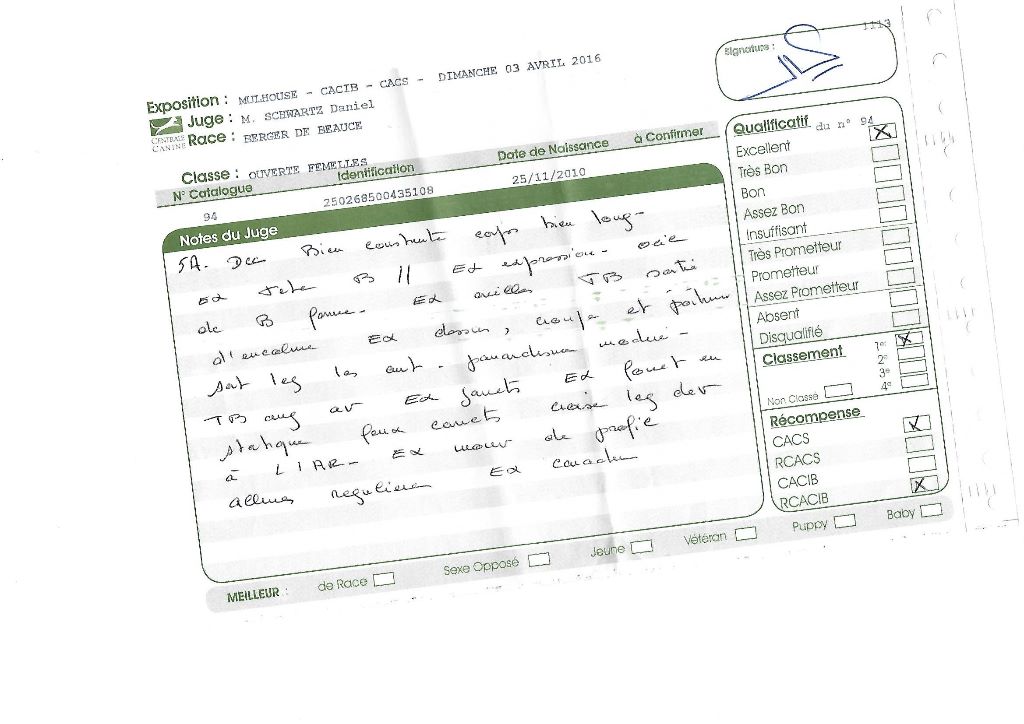 1113
Signature :
Exposition : MULHOUSE - CACIB - CACS - DIMANCHE 03 AVRIL 2016
Juge : M. SCHWARTZ Daniel
CENTRALE CANINE
Race : BERGER DE BEAUCE
Classe : OUVERTE FEMELLES
N° Catalogue Identification Date de Naissance à Confirmer
94 250268500435108 25/11/2010
Notes du Juge
5A. Bien construite corps bien long -
Ex tete B // Ex expression - oeil
de B forme - Ex oreilles TB sortie
d'encolure Ex dessus, croupe et poitrine
leg les ant -
TB ang av Ex jarrets Ex fouet en
statique croise leg dev
à L'AR - Ex mouv de profil
allures regulieres Ex caractere
Qualificatif du n° 94
Excellent
Très Bon
Bon
Assez Bon
Insuffisant
Très Prometteur
Prometteur
Assez Prometteur
Absent
Disqualifié
Classement
1er
2e
3e
4e
Non Classé
Récompense
CACS
RCACS
CACIB
RCACIB
MEILLEUR : de Race Sexe Opposé Jeune Vétéran Puppy Baby